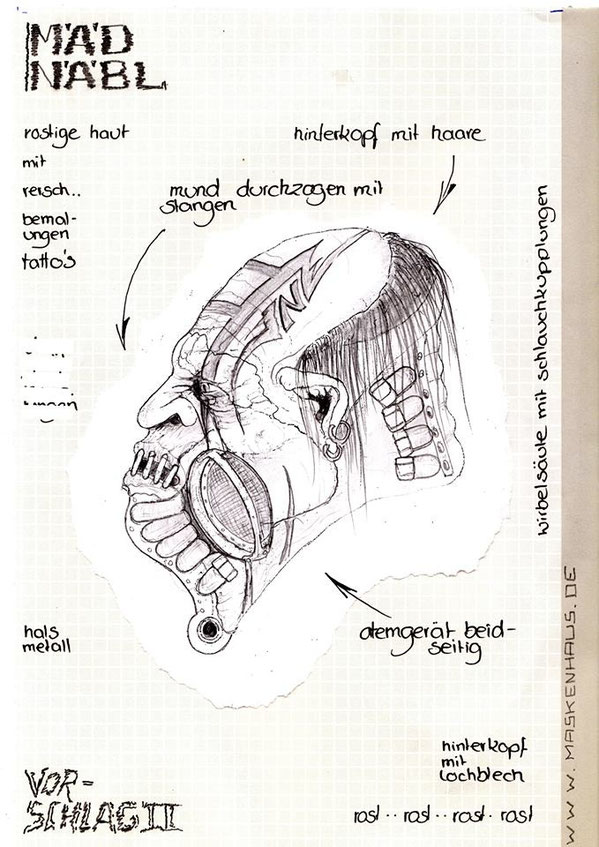 MÄD
NÄBL
rostige haut
mit
reisch..
bemal-
ungen
tatto's
hinterkopf mit haare
mund durchzogen mit
stangen
wirbelsäule mit schlauchkupplungen
hals
metall
atemgerät beid-
seitig
hinterkopf
mit
lochblech
VOR-
SCHLAG II
rost .. rost .. rost . rost
WWW. MASKENHAUS.DE